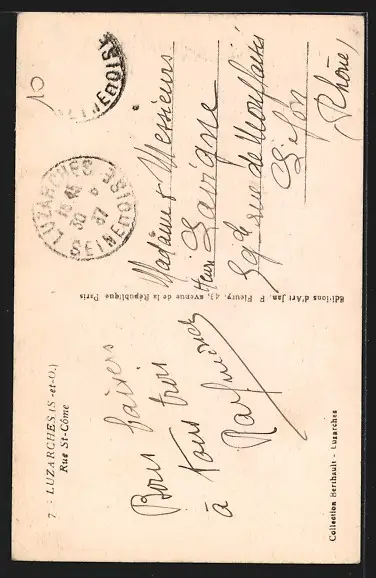 7 - LUZARCHES (S.-et-O.)
Rue St-Côme
Bons baisers
à tous trois
Raymonde
Editions d'Art Jan, P. Fleury, 43, avenue de la République Paris
LUZARCHES
SEINE-ET-OISE
30 6
37
SEINE-ET-OISE
10
Madame & Messieurs
Henri Lavigne
rue de Montfaités
Lyon
(Rhône)
Collection Berthault - Luzarches